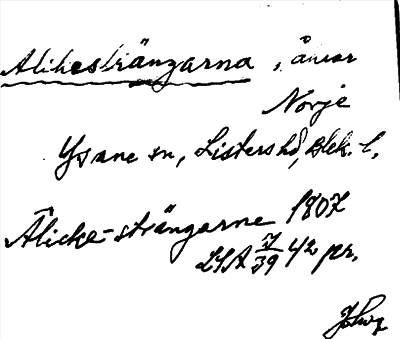 Alikesträngarna, åkrar
Norje
Ysane sn, Listers hd, Blek. l.
Ålicke-strängarne 1807
LSA 7/39 42 pr.